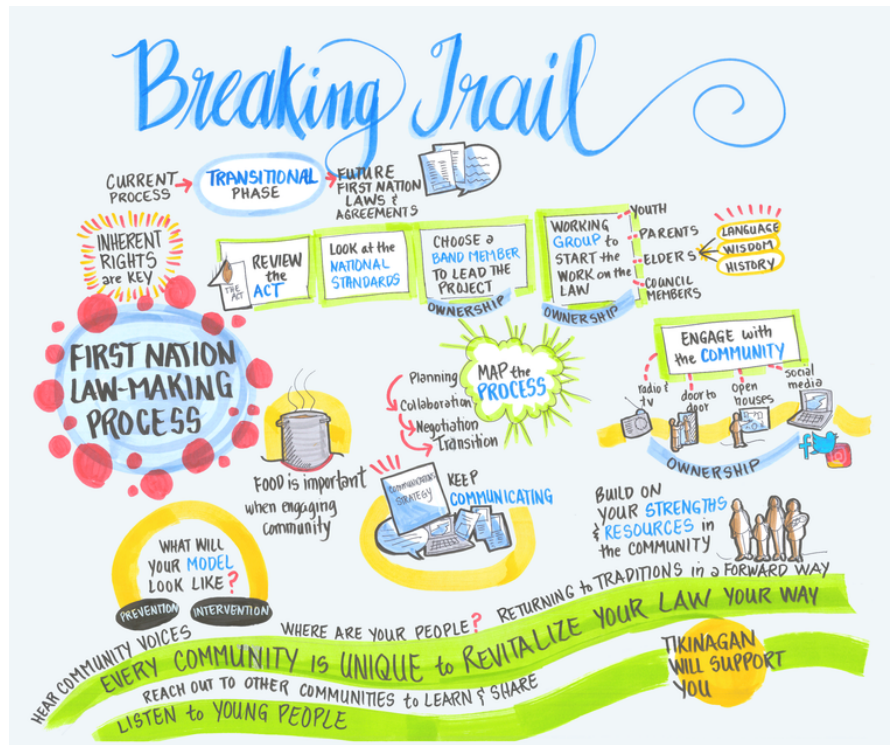 Breaking Trail
CURRENT
PROCESS
TRANSITIONAL
PHASE
FUTURE
FIRST NATION
LAWS &
AGREEMENTS
INHERENT
RIGHTS
are KEY
THE
ACT
REVIEW
the
ACT
LOOK at the
NATIONAL
STANDARDS
CHOOSE a
BAND MEMBER
TO LEAD THE
PROJECT
OWNERSHIP
WORKING
GROUP to
START the
WORK on the
LAW
OWNERSHIP
YOUTH
PARENTS
ELDERS
COUNCIL
MEMBERS
LANGUAGE
WISDOM
HISTORY
FIRST NATION
LAW-MAKING
PROCESS
Planning
Collaboration
Negotiation
Transition
MAP the
PROCESS
ENGAGE with
the COMMUNITY
radio &
tv
door to
door
open
houses
social
media
OWNERSHIP
FOOD is important
when engaging
community
COMMUNICATIONS
STRATEGY
KEEP
COMMUNICATING
BUILD ON
YOUR STRENGTHS
& RESOURCES in
the COMMUNITY
WHAT WILL
YOUR MODEL
LOOK LIKE?
PREVENTION
INTERVENTION
HEAR COMMUNITY VOICES
WHERE ARE YOUR PEOPLE?
RETURNING to TRADITIONS in a FORWARD WAY
EVERY COMMUNITY IS UNIQUE to REVITALIZE YOUR LAW YOUR WAY
REACH OUT TO OTHER COMMUNITIES to LEARN & SHARE
LISTEN to YOUNG PEOPLE
TIKINAGAN
WILL SUPPORT
YOU